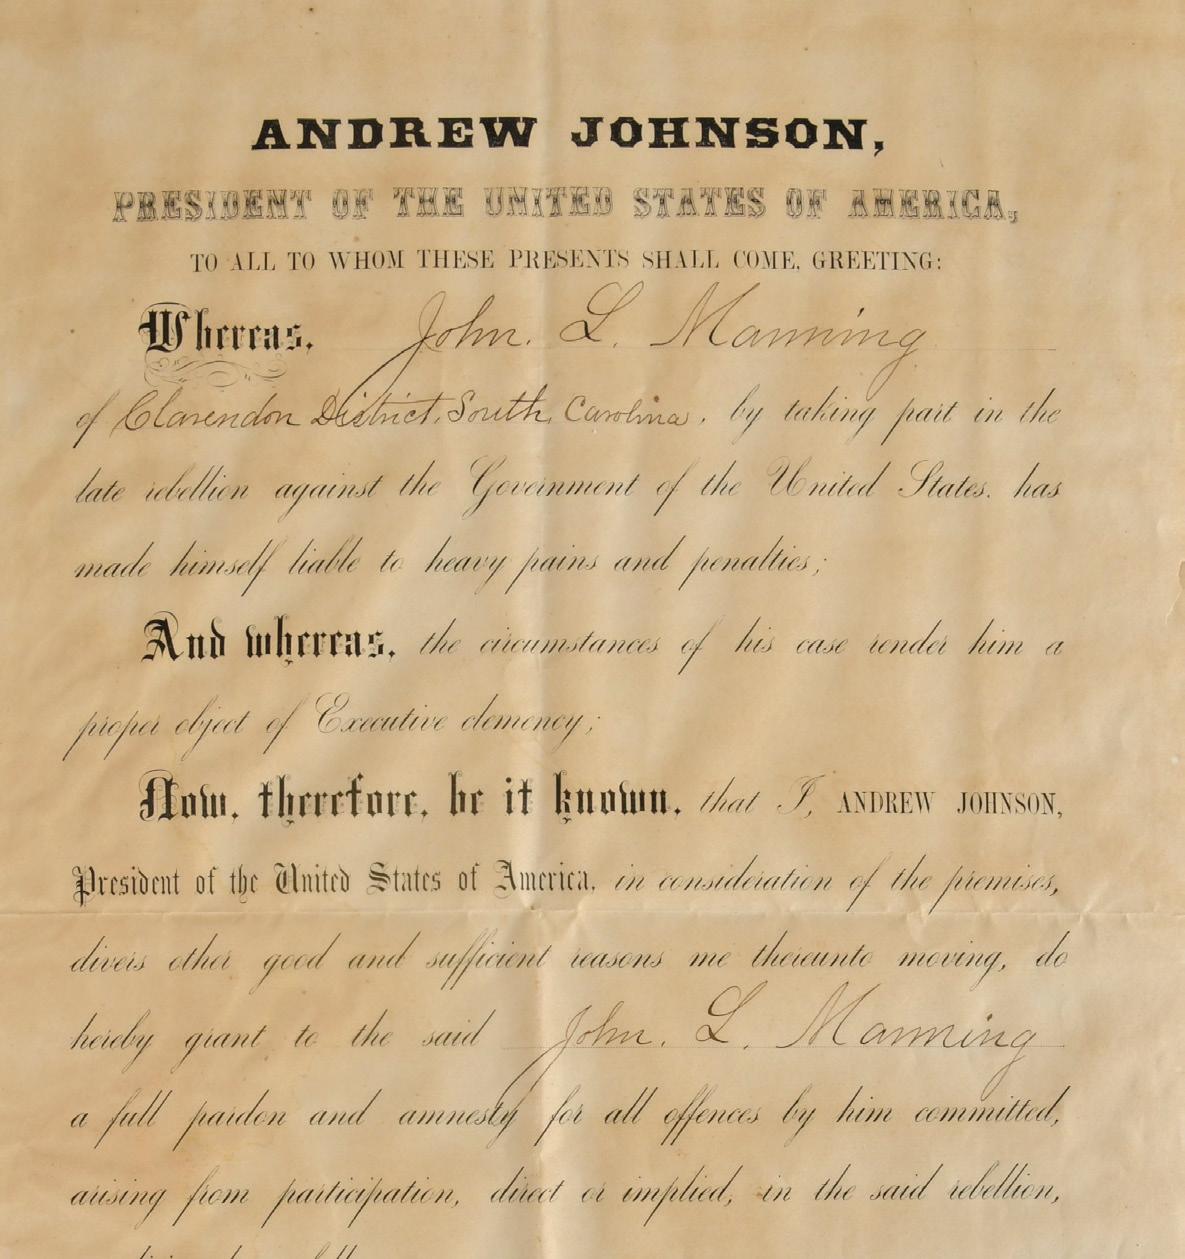 ANDREW JOHNSON,
PRESIDENT OF THE UNITED STATES OF AMERICA,
TO ALL TO WHOM THESE PRESENTS SHALL COME, GREETING:
Whereas, John. L. Manning
of Clarendon District, South, Carolina, by taking part in the
late rebellion against the Government of the United States, has
made himself liable to heavy pains and penalties;
And whereas, the circumstances of his case render him a
proper object of Executive clemency;
Now, therefore, be it known, that I, ANDREW JOHNSON,
President of the United States of America, in consideration of the premises,
divers other good and sufficient reasons me thereunto moving, do
hereby grant to the said John. L. Manning
a full pardon and amnesty for all offences by him committed,
arising from participation, direct or implied, in the said rebellion,